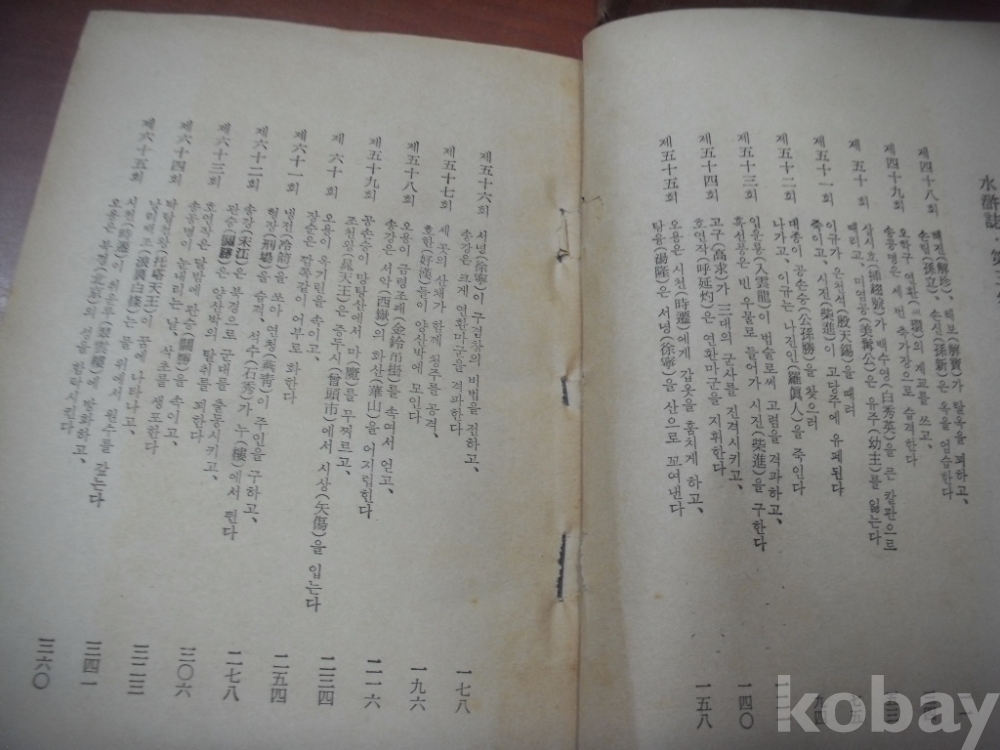 水滸誌
제四十八회
해진(解珍)、해보(解寶)가 탈옥을 꾀하고、
손립(孫立)、손신(孫新)은 옥을 엄습한다
제四十九회
오학구 연환(連環)의 계교를 쓰고、
송공명은 세 번 축가장으로 습격한다
제五十회
삽시호(揷翅虎)가 백수영(白秀英)을 큰 칼판으로
때리고、미염공(美髥公)은 유주(幼主)를 잃는다
제五十一회
이규가 은천석(殷天錫)을 때려
죽이고、시진(柴進)이 고당주에 유폐된다
제五十二회
대종이 공손승(公孫勝)을 찾으러
나가고、이규는 나진인(羅眞人)을 죽인다
제五十三회
입운룡(入雲龍)이 범술로써 고렴을 격파하고、
흑선풍은 빈 우물로 들어가 시진(柴進)을 구한다
제五十四회
고구(高求)가 三대의 군사를 진격시키고、
호연작(呼延灼)은 연환마군을 지휘한다
제五十五회
오용은 시천(時遷)에게 갑옷을 훔치게 하고、
탕융(湯隆)은 서녕(徐寧)을 산으로 꼬여낸다
一四〇
一五八
제五十六회
서녕(徐寧)이 구겸창의 비법을 전하고、
송강은 크게 연환마군을 격파한다
一七八
제五十七회
세 곳의 산채가 함께 청주를 공격、
호한(好漢)들이 양산박에 모인다
一九六
제五十八회
오용이 금령조괘(金鈴吊掛)를 속여서 얻고、
송강은 서악(西嶽)의 화산(華山)을 어지럽힌다
二一六
제五十九회
공손승이 망탕산에서 마(魔)를 무찌르고、
조천왕(晁天王)은 증두시(曾頭市)에서 시상(矢傷)을 입는다
二三四
제六十회
오용이 옥기린을 속이고、
장순은 깜쪽같이 어부로 화한다
二五四
제六十一회
냉전(冷箭)을 쏘아 연청(燕靑)이 주인을 구하고、
형장(刑場)을 습격、석수(石秀)가 누(樓)에서 뛴다
二七八
제六十二회
송강(宋江)은 북경으로 군대를 출동시키고、
관승(關勝)은 양산박의 탈취를 꾀한다
三〇六
제六十三회
호연작은 달밤에 관승(關勝)을 속이고、
송공명이 눈내리는 날、삭초를 생포한다
三二三
제六十四회
탁탑천왕(托塔天王)이 꿈에 나타나고、
낭리백조(浪裏白條)는 물 위에서 원수를 갚는다
三四一
제六十五회
시천(時遷)이 취운루(翠雲樓)에 방화하고、
오용은 북경(北京)의 성을 함락시킨다
三六〇
kobay